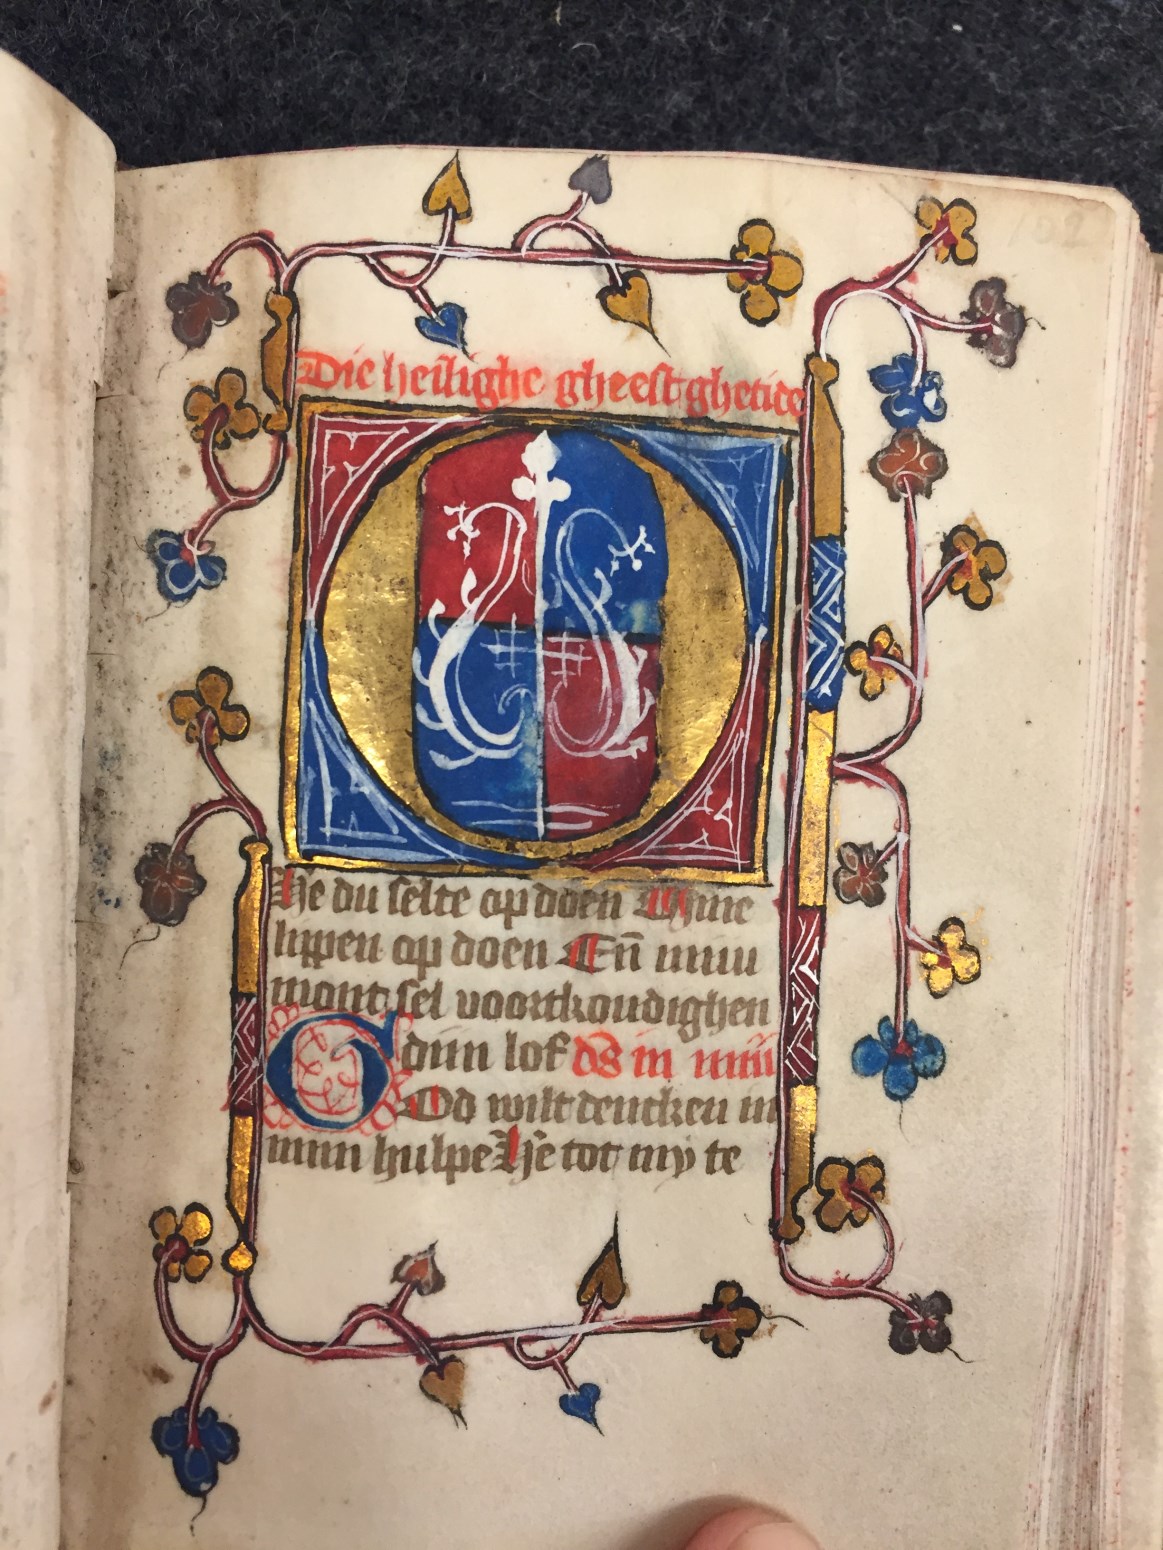 102
Die heilighe gheest ghetide
O
He du selte op doen Myne
lippen op doen En̄ miin
mont sel voortkondighen
diin lof d͞s in miin
God wilt dencken in
miin hulpe He͛ tot my te